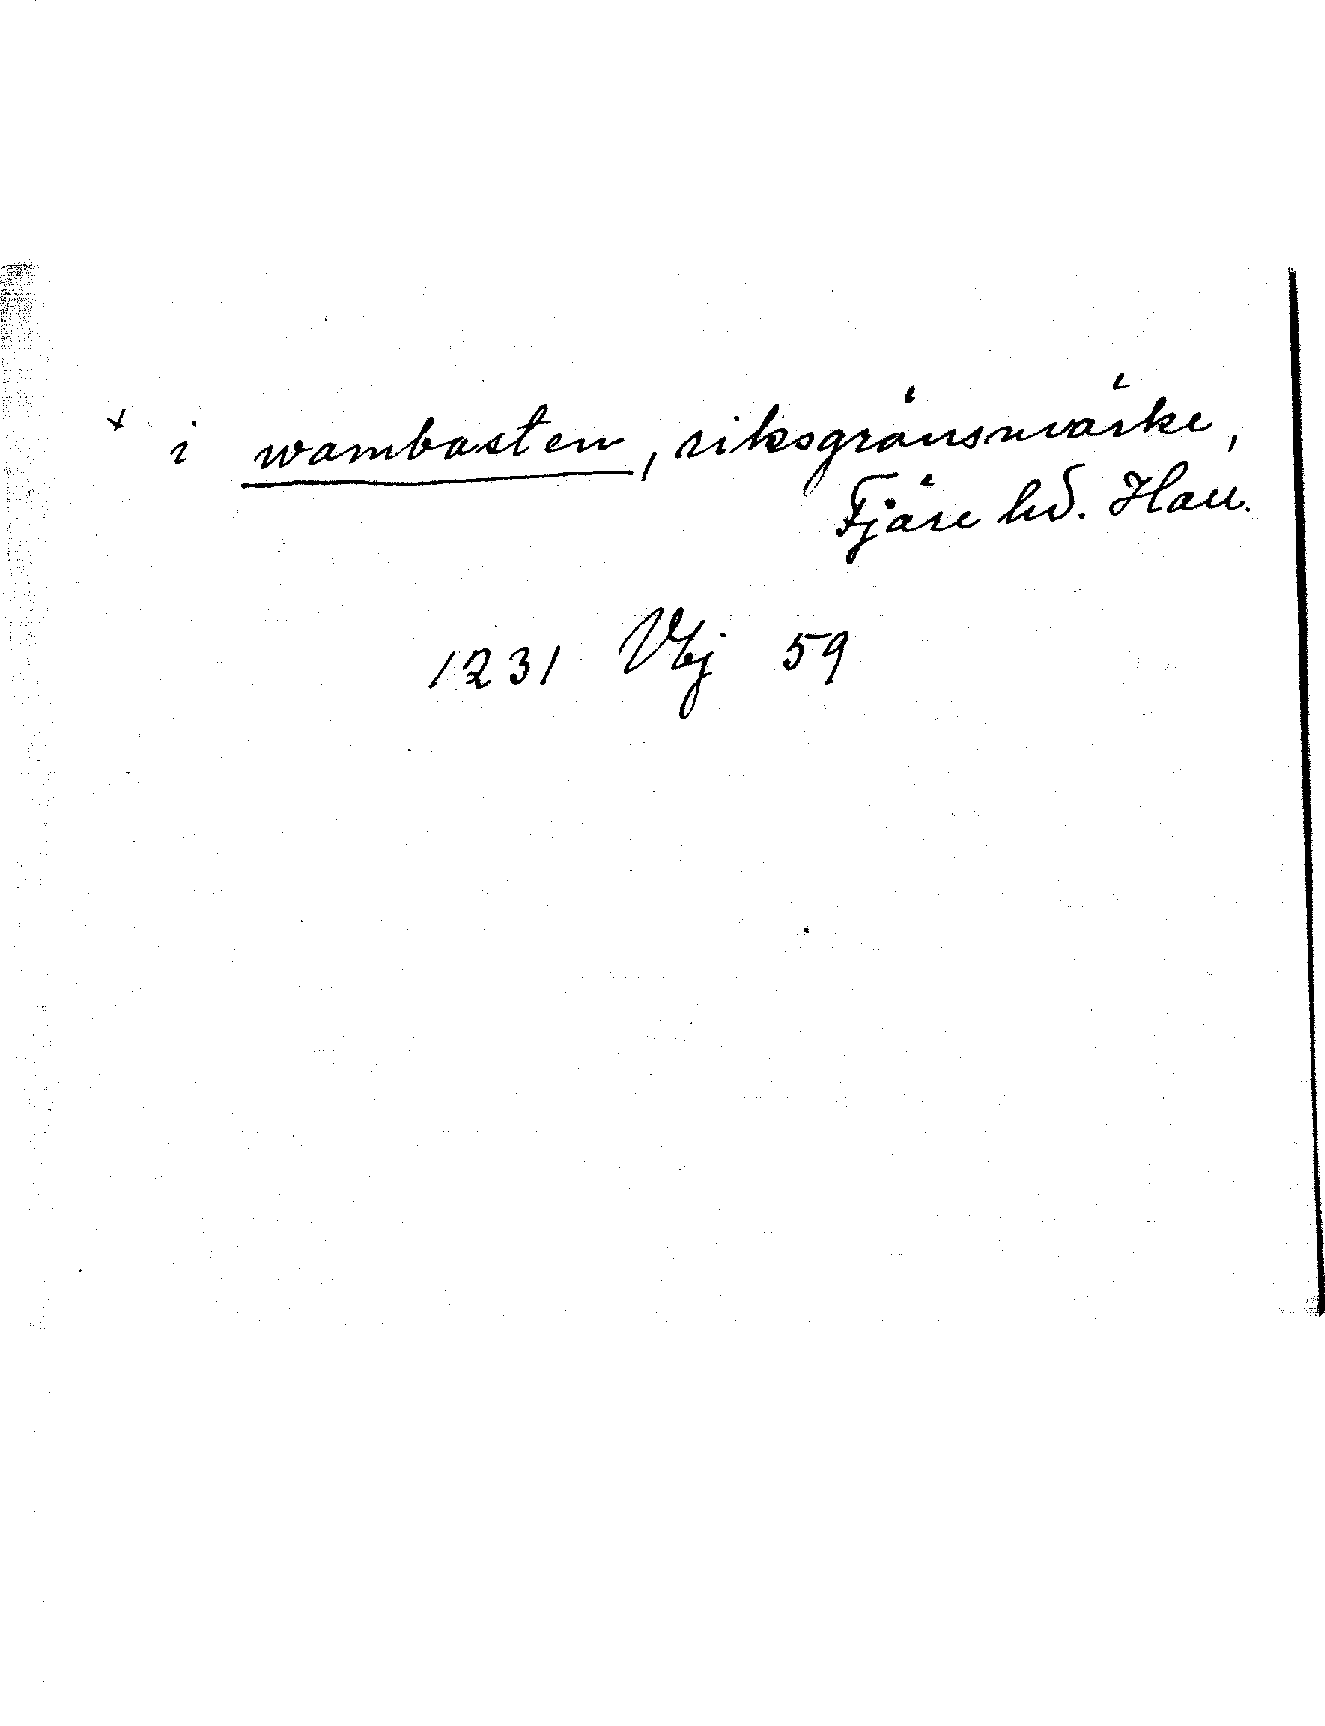 + i wambasten, riksgränsmärke,
Fjäre hd. Hall.
1231 Vbj 59